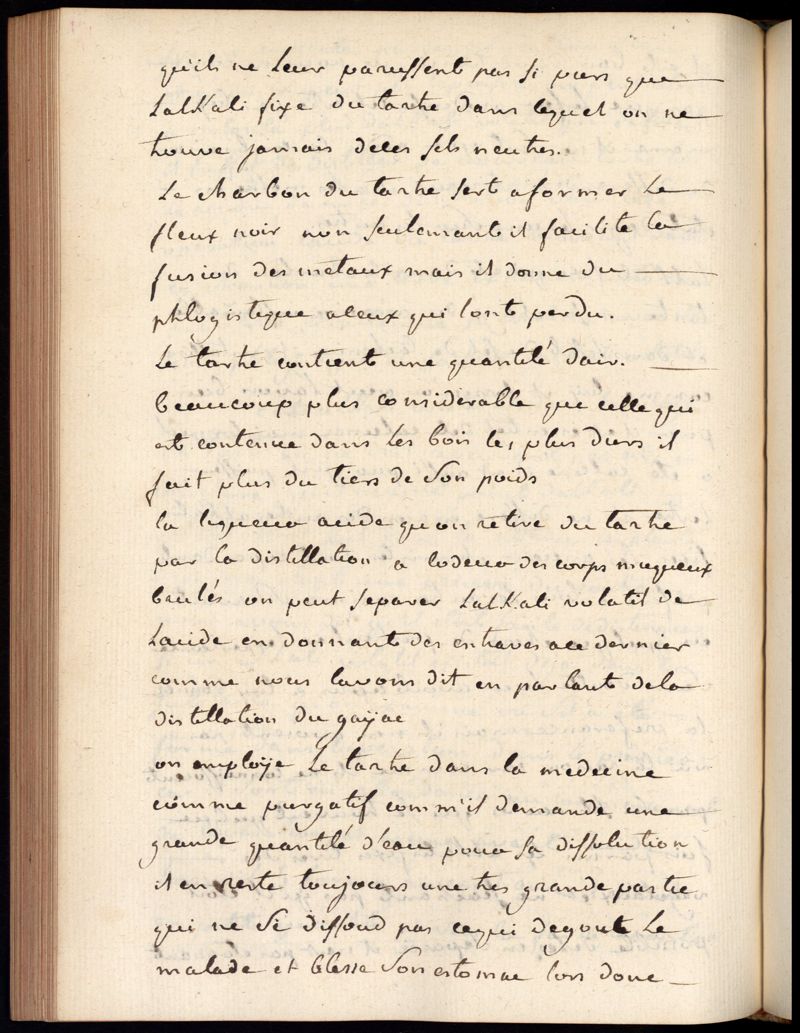 qu'ils ne leur parussent pas si purs que
Lalkali fixe du tartre dans lequel on ne
trouve jamais deces sels neutres.
Le charbon du tartre sert aformer Le
fleux noir non seulemant il facilite la
fusion des metaux mais il donne du
phlogistique aceux qui lont perdu.
Le tartre contient une quantité dair.
beaucoup plus considerable que celle qui
est contenue dans Les bois les plus durs il
fait plus du tiers de Son poids
la liqueur acide quon retire du tartre
par la distillation a lodeur des corps muqueux
brulés on peut separer Lalkali volatil de
Lacide en donnant des entraves ace dernier
comme nous lavons dit en parlant dela
distillation du gayac
on employe Le tartre dans la medecine
comme purgatif comm'il demande une
grande quantité d'eau pour sa dissolution
il en reste toujours une tres grande partie
qui ne Se dissoud pas cequi degoute Le
malade et blesse Son estomac lors donc